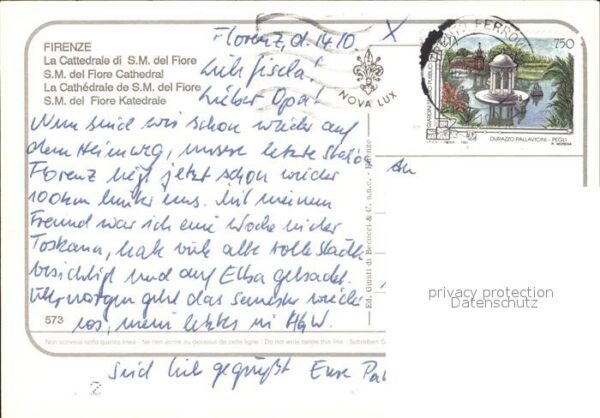 FIRENZE
La Cattedrale di S.M. del Fiore
S.M. del Fiore Cathedral
La Cathédrale de S.M. del Fiore
S.M. del Fiore Katedrale
Florenz, d. 14.10.
X
Liebe Gisela!
Lieber Opa!
NOVA LUX
750
DURAZZO PALLAVICINI - PEGLI
Nun sind wir schon wieder auf
dem Heimweg, unsere letzte Station
Florenz liegt jetzt schon wieder
100 km hinter uns. Mit meinem
Freund war ich eine Woche in der
Toskana, hab viele alte tolle Städte
besichtigt und auf Elba gebadet.
Übermorgen geht das Semester wieder
los, mein letztes in HGW.
An
Ed. Giusti di Becocci & C. s.n.c. - Firenze
privacy protection
Datenschutz
573
Non scrivere sotto questa linea - Ne rien écrire au dessous de cette ligne - Do not write below this line - Schreiben S
Seid lieb gegrüßt Eure